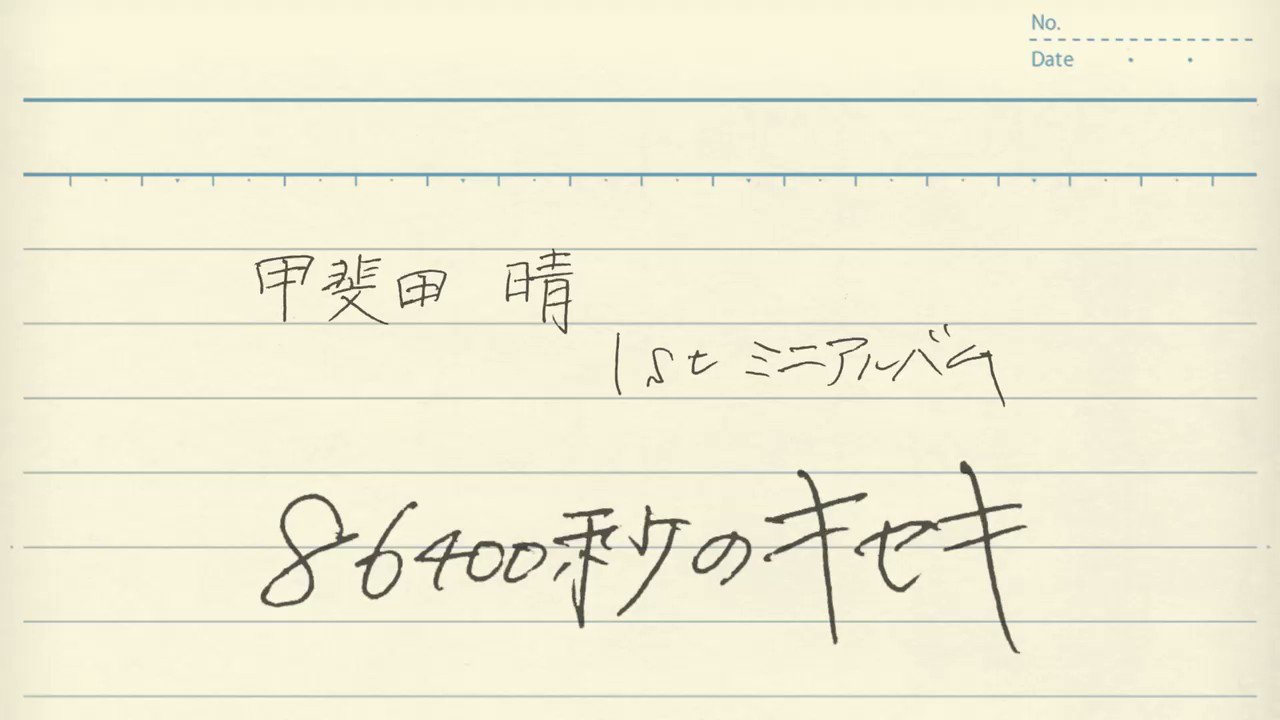 No.
Date
甲斐田 晴
1st ミニアルバム
86400秒のキセキ